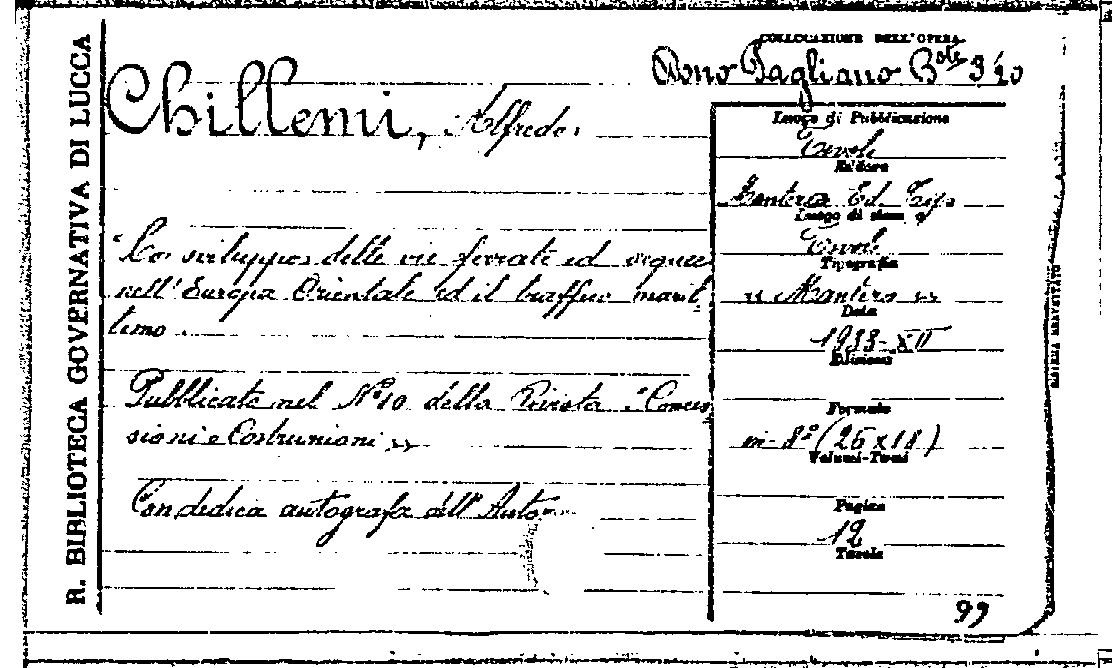 R. BIBLIOTECA GOVERNATIVA DI LUCCA
COLLOCAZIONE DELL'OPERA
Dono Pagliano Bte 320
Chillemi, Alfredo.
"Lo sviluppo delle vie ferrate ed acquee
nell'Europa Orientale ed il traffico marit
timo.
Pubblicato nel N° 10 della Rivista "Conces
sioni e Costruzioni »
Con dedica autografa dell'Autore
Luogo di Pubblicazione
Tivoli
Editore
Mantero Ed. Tip.
Luogo di stampa
Tivoli
Tipografia
« Mantero »
Data
1933-XII
Edizione
Formato
in-8° (25x18)
Volumi-Tomi
Pagine
12
Tavole
99